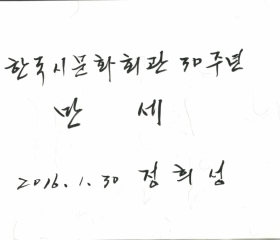 한국시문화회관 30주년
만세
2016.1.30 정희성